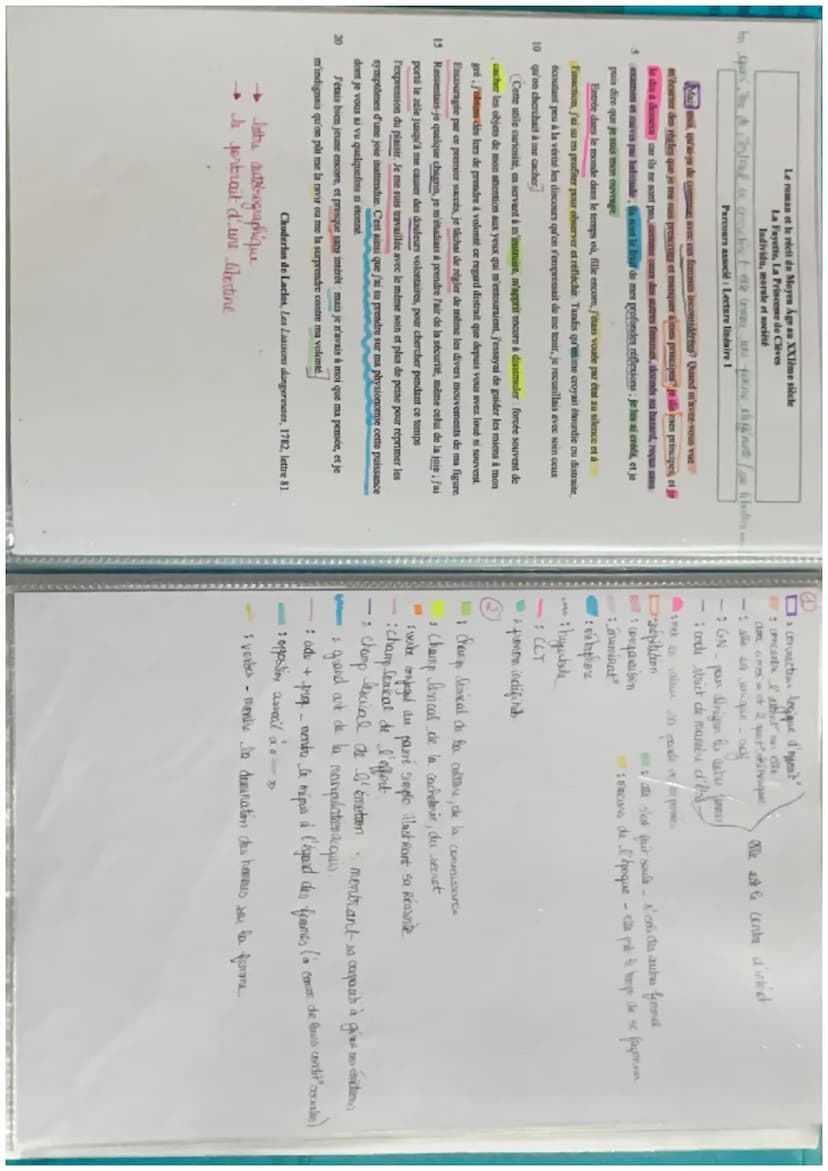 Le roman et le récit du Moyen Âge au XXIème siècle
La Fayette, La Princesse de Clèves
Individu, morale et société
Parcours associé : Lecture linéaire 1
Mais moi, qu'ai-je de commun avec ces femmes inconsidérées ? Quand m'avez-vous vue
m'écarter des règles que je me suis prescrites et manquer à mes principes ? je dis mes principes, et je
le dis à dessein : car ils ne sont pas, comme ceux des autres femmes, donnés au hasard, reçus sans
5 examen et suivis par habitude ; ils sont le fruit de mes profondes réflexions ; je les ai créés, et je
puis dire que je suis mon ouvrage.
Entrée dans le monde dans le temps où, fille encore, j'étais vouée par état au silence et à
l'inaction, j'ai su en profiter pour observer et réfléchir. Tandis qu'on me croyait étourdie ou distraite,
écoutant peu à la vérité les discours qu'on s'empressait de me tenir, je recueillais avec soin ceux
10 qu'on cherchait à me cacher.
Cette utile curiosité, en servant à m'instruire, m'apprit encore à dissimuler : forcée souvent de
cacher les objets de mon attention aux yeux qui m'entouraient, j'essayai de guider les miens à mon
gré ; j'obtins dès lors de prendre à volonté ce regard distrait que depuis vous avez loué si souvent.
Encouragée par ce premier succès, je tâchai de régler de même les divers mouvements de ma figure.
15 Ressentais-je quelque chagrin, je m'étudiais à prendre l'air de la sécurité, même celui de la joie ; j'ai
porté le zèle jusqu'à me causer des douleurs volontaires, pour chercher pendant ce temps
l'expression du plaisir. Je me suis travaillée avec le même soin et plus de peine pour réprimer les
symptômes d'une joie inattendue. C'est ainsi que j'ai su prendre sur ma physionomie cette puissance
dont je vous ai vu quelquefois si étonné.
20 J'étais bien jeune encore, et presque sans intérêt : mais je n'avais à moi que ma pensée, et je
m'indignais qu'on pût me la ravir ou me la surprendre contre ma volonté.
Choderlos de Laclos, Les Liaisons dangereuses, 1782, lettre 81
→ lettre autobiographique
→ le portrait d'une libertine
①
: connecteur logique d'opposit°
elle est le centre d'intérêt
: GN - pour désigner les autres femmes
: répétition
: elle s'est fait seule -
: comparaison
: énumérat°
: métaphore
: hyperbole
: CCT
: pronom indéfini
②
: champ lexical de la culture, de la connaissance
: champ lexical de la cachoterie, du secret
: verbe conjugué au passé simple illustrant sa réussite
: champ lexical de l'effort
: champ lexical de l'émotion : montrant sa capacité à gérer ses émotions
: grand art de la manipulation acquis
: verbes - montre la domination des hommes sur la femme